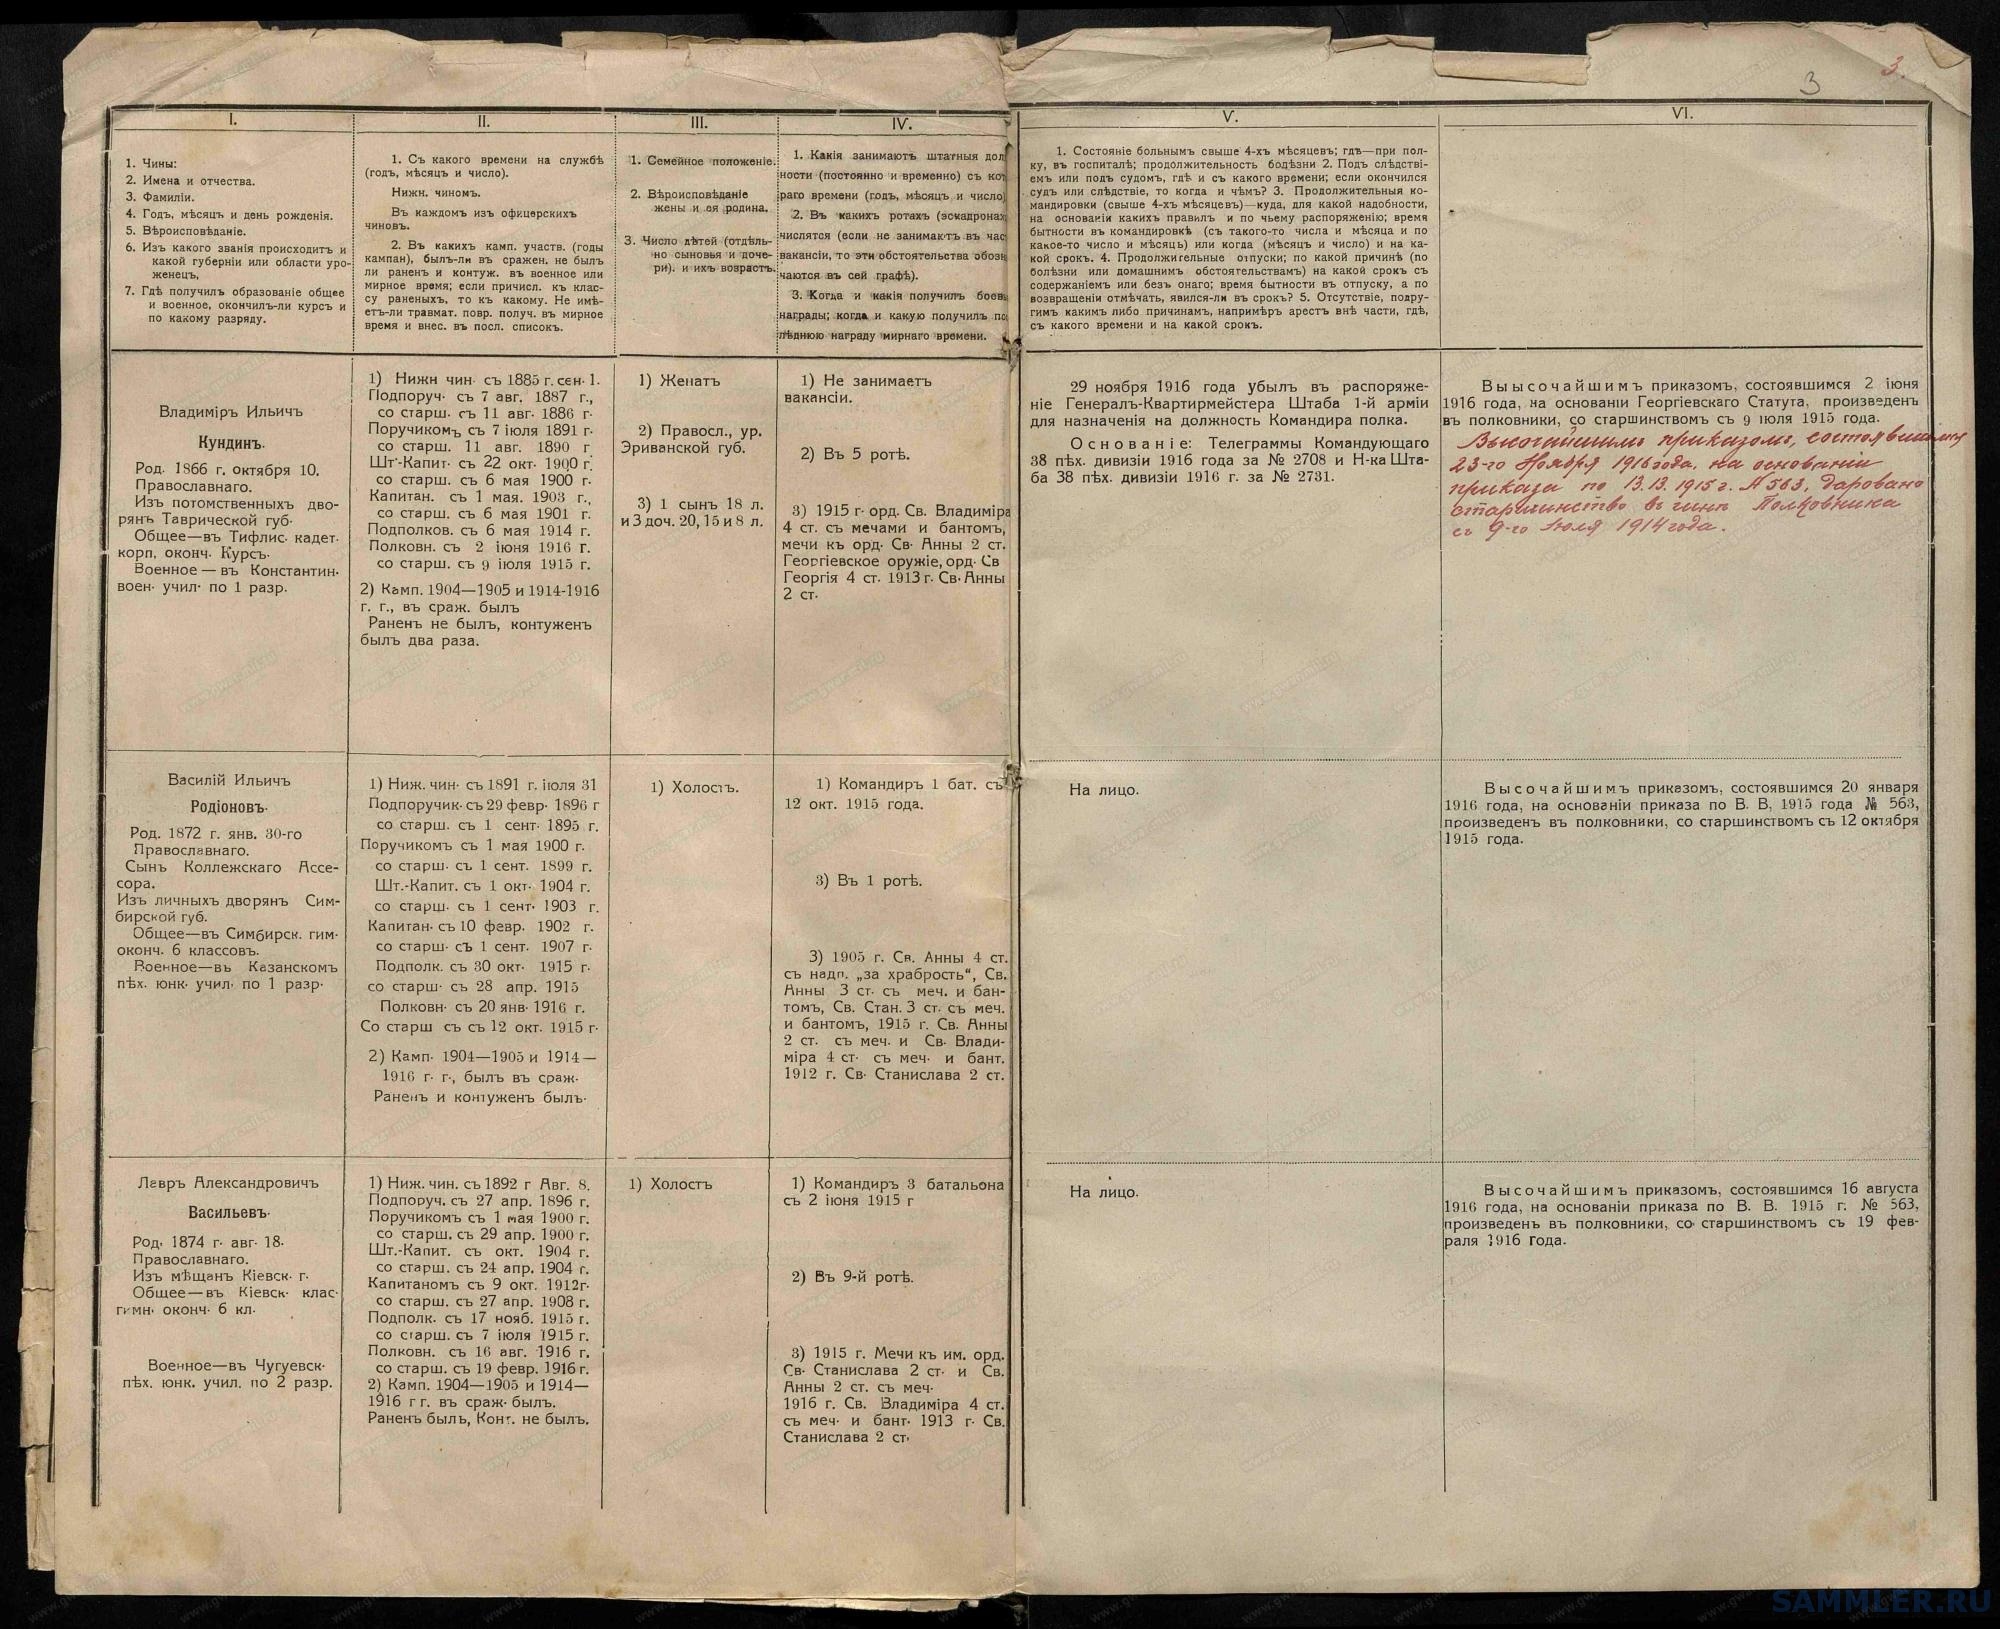 3
3.
I.
1. Чины:
2. Имена и отчества.
3. Фамиліи.
4. Годъ, мѣсяцъ и день рожденія.
5. Вѣроисповѣданіе.
6. Изъ какого званія происходитъ и
какой губерніи или области уро-
женецъ,
7. Гдѣ получилъ образованіе общее
и военное, окончилъ-ли курсъ и
по какому разряду.
II.
1. Съ какого времени на службѣ
(годъ, мѣсяцъ и число).
Нижн. чиномъ.
Въ каждомъ изъ офицерскихъ
чиновъ.
2. Въ какихъ камп. участв. (годы
кампан), былъ-ли въ сражен. не былъ
ли раненъ и контуж. въ военное или
мирное время; если причисл. къ клас-
су раненыхъ, то къ какому. Не имѣ-
етъ-ли травмат. повр. получ. въ мирное
время и внес. въ посл. списокъ.
III.
1. Семейное положеніе.
2. Вѣроисповѣданіе
жены и ея родина.
3. Число дѣтей (отдѣль-
но сыновья и доче-
ри). и ихъ возрастъ.
IV.
1. Какія занимаютъ штатныя дол
ности (постоянно и временно) съ ко
раго времени (годъ, мѣсяцъ и число)
2. Въ какихъ ротахъ (эскадронах
числятся (если не занимактъ въ час
вакансіи, то эти обстоятельства обозн
чаются въ сей графѣ).
3. Когда и какія получилъ боев
награды; когда и какую получилъ по
лѣднюю награду мирнаго времени.
V.
1. Состояніе больнымъ свыше 4-хъ мѣсяцевъ; гдѣ—при пол-
ку, въ госпиталѣ; продолжительность болѣзни 2. Подъ слѣдстві-
емъ или подъ судомъ, гдѣ и съ какого времени; если окончился
судъ или слѣдствіе, то когда и чѣмъ? 3. Продолжительныя ко-
мандировки (свыше 4-хъ мѣсяцевъ)—куда, для какой надобности,
на основаніи какихъ правилъ и по чьему распоряженію; время
бытности въ командировкѣ (съ такого-то числа и мѣсяца и по
какое-то число и мѣсяць) или когда (мѣсяцъ и число) и на ка-
кой срокъ. 4. Продолжительные отпуски; по какой причинѣ (по
болѣзни или домашнимъ обстоятельствамъ) на какой срокъ съ
содержаніемъ или безъ онаго; время бытности въ отпуску, а по
возвращеніи отмѣчать, явился-ли въ срокъ? 5. Отсутствіе, подру-
гимъ какимъ либо причинамъ, напримѣръ арестъ внѣ части, гдѣ,
съ какого времени и на какой срокъ.
VI.
Владиміръ Ильичъ
Кундинъ.
Род. 1866 г. октября 10.
Православнаго.
Изъ потомственныхъ дво-
рянъ Таврической губ.
Общее—въ Тифлис. кадет.
корп, оконч. Курсъ.
Военное — въ Константин.
воен. учил. по 1 разр.
1) Нижн чин. съ 1885 г. сен. 1.
Подпоруч. съ 7 авг. 1887 г.,
со старш. съ 11 авг. 1886 г.
Поручикомъ съ 7 іюля 1891 г.
со старш. 11 авг. 1890 г
Шт.-Капит. съ 22 окт. 1900 г.
со старш. съ 6 мая 1900 г.
Капитан. съ 1 мая. 1903 г.,
со старш. съ 6 мая 1901 г.
Подполков. съ 6 мая 1914 г.
Полковн. съ 2 іюня 1916 г.
со старш. съ 9 іюля 1915 г.
2) Камп. 1904—1905 и 1914-1916
г. г., въ сраж. былъ
Раненъ не былъ, контуженъ
былъ два раза.
1) Женатъ
2) Правосл., ур.
Эриванской губ.
3) 1 сынъ 18 л.
и 3 доч. 20, 15 и 8 л.
1) Не занимаетъ
вакансіи.
2) Въ 5 ротѣ.
3) 1915 г. орд. Св. Владиміра
4 ст. съ мечами и бантомъ,
мечи къ орд. Св. Анны 2 ст.
Георгіевское оружіе, орд. Св
Георгія 4 ст. 1913 г. Св. Анны
2 ст.
29 ноября 1916 года убылъ въ распоряже-
ніе Генералъ-Квартирмейстера Штаба 1-й арміи
для назначенія на должность Командира полка.
Основаніе: Телеграммы Командующаго
38 пѣх. дивизіи 1916 года за № 2708 и Н-ка Шта-
ба 38 пѣх. дивизіи 1916 г. за № 2731.
Выысочайшимъ приказомъ, состоявшимся 2 іюня
1916 года, на основаніи Георгіевскаго Статута, произведенъ
въ полковники, со старшинствомъ съ 9 іюля 1915 года.
Высочайшимъ приказомъ, состоявшимся
23-го Ноября 1916 года, на основаніи
приказа по В.В. 1915 г. № 563, даровано
старшинство въ чинѣ Полковника
съ 9-го Іюля 1914 года.
Василій Ильичъ
Родіоновъ.
Род. 1872 г. янв. 30-го
Православнаго.
Сынъ Коллежскаго Ассе-
сора.
Изъ личныхъ дворянъ Сим-
бирской губ.
Общее—въ Симбирск. гим.
оконч. 6 классовъ.
Военное—въ Казанскомъ
пѣх. юнк. учил. по 1 разр.
1) Ниж. чин. съ 1891 г. іюля 31
Подпоручик. съ 29 февр. 1896 г
со старш. съ 1 сент. 1895 г.
Поручикомъ съ 1 мая 1900 г.
со старш. съ 1 сент. 1899 г.
Шт.-Капит. съ 1 окт. 1904 г.
со старш. съ 1 сент. 1903 г.
Капитан. съ 10 февр. 1902 г.
со старш. съ 1 сент. 1907 г.
Подполк. съ 30 окт. 1915 г.
со старш. съ 28 апр. 1915
Полковн. съ 20 янв. 1916 г.
Со старш съ съ 12 окт. 1915 г.
2) Камп. 1904—1905 и 1914—
1916 г. г., былъ въ сраж.
Раненъ и контуженъ былъ.
1) Холостъ.
1) Командиръ 1 бат. съ
12 окт. 1915 года.
3) Въ 1 ротѣ.
3) 1905 г. Св. Анны 4 ст.
съ надп. „за храбрость“, Св.
Анны 3 ст. съ меч. и бан-
томъ, Св. Стан. 3 ст. съ меч.
и бантомъ, 1915 г. Св. Анны
2 ст. съ меч. и Св. Влади-
міра 4 ст. съ меч. и бант.
1912 г. Св. Станислава 2 ст.
На лицо.
Высочайшимъ приказомъ, состоявшимся 20 января
1916 года, на основаніи приказа по В. В, 1915 года № 563,
произведенъ въ полковники, со старшинствомъ съ 12 октября
1915 года.
Лавръ Александровичъ
Васильевъ.
Род. 1874 г. авг. 18.
Православнаго.
Изъ мѣщанъ Кіевск. г.
Общее—въ Кіевск. клас.
гимн. оконч. 6 кл.
Военное—въ Чугуевск.
пѣх. юнк. учил. по 2 разр.
1) Ниж. чин. съ 1892 г Авг. 8.
Подпоруч. съ 27 апр. 1896 г.
Поручикомъ съ 1 мая 1900 г.
со старш. съ 29 апр. 1900 г.
Шт.-Капит. съ окт. 1904 г.
со старш. съ 24 апр. 1904 г.
Капитаномъ съ 9 окт. 1912г.
со старш. съ 27 апр. 1908 г.
Подполк. съ 17 нояб. 1915 г.
со старш. съ 7 іюля 1915 г.
Полковн. съ 16 авг. 1916 г.
со старш. съ 19 февр. 1916 г.
2) Камп. 1904—1905 и 1914—
1916 г г. въ сраж. былъ.
Раненъ былъ, Конт. не былъ.
1) Холостъ
1) Командиръ 3 батальона
съ 2 іюня 1915 г
2) Въ 9-й ротѣ.
3) 1915 г. Мечи къ им. орд.
Св. Станислава 2 ст. и Св.
Анны 2 ст. съ меч.
1916 г. Св. Владиміра 4 ст.
съ меч. и бант. 1913 г. Св.
Станислава 2 ст.
На лицо.
Высочайшимъ приказомъ, состоявшимся 16 августа
1916 года, на основаніи приказа по В. В. 1915 г. № 563,
произведенъ въ полковники, со старшинствомъ съ 19 фев-
раля 1916 года.
SAMMLER.RU